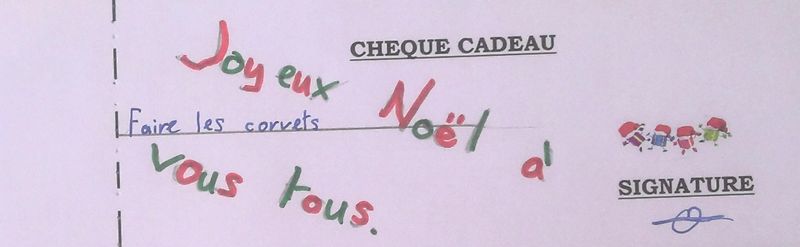 CHEQUE CADEAU
Joyeux Noël à
Faire les corvets
vous tous.
SIGNATURE